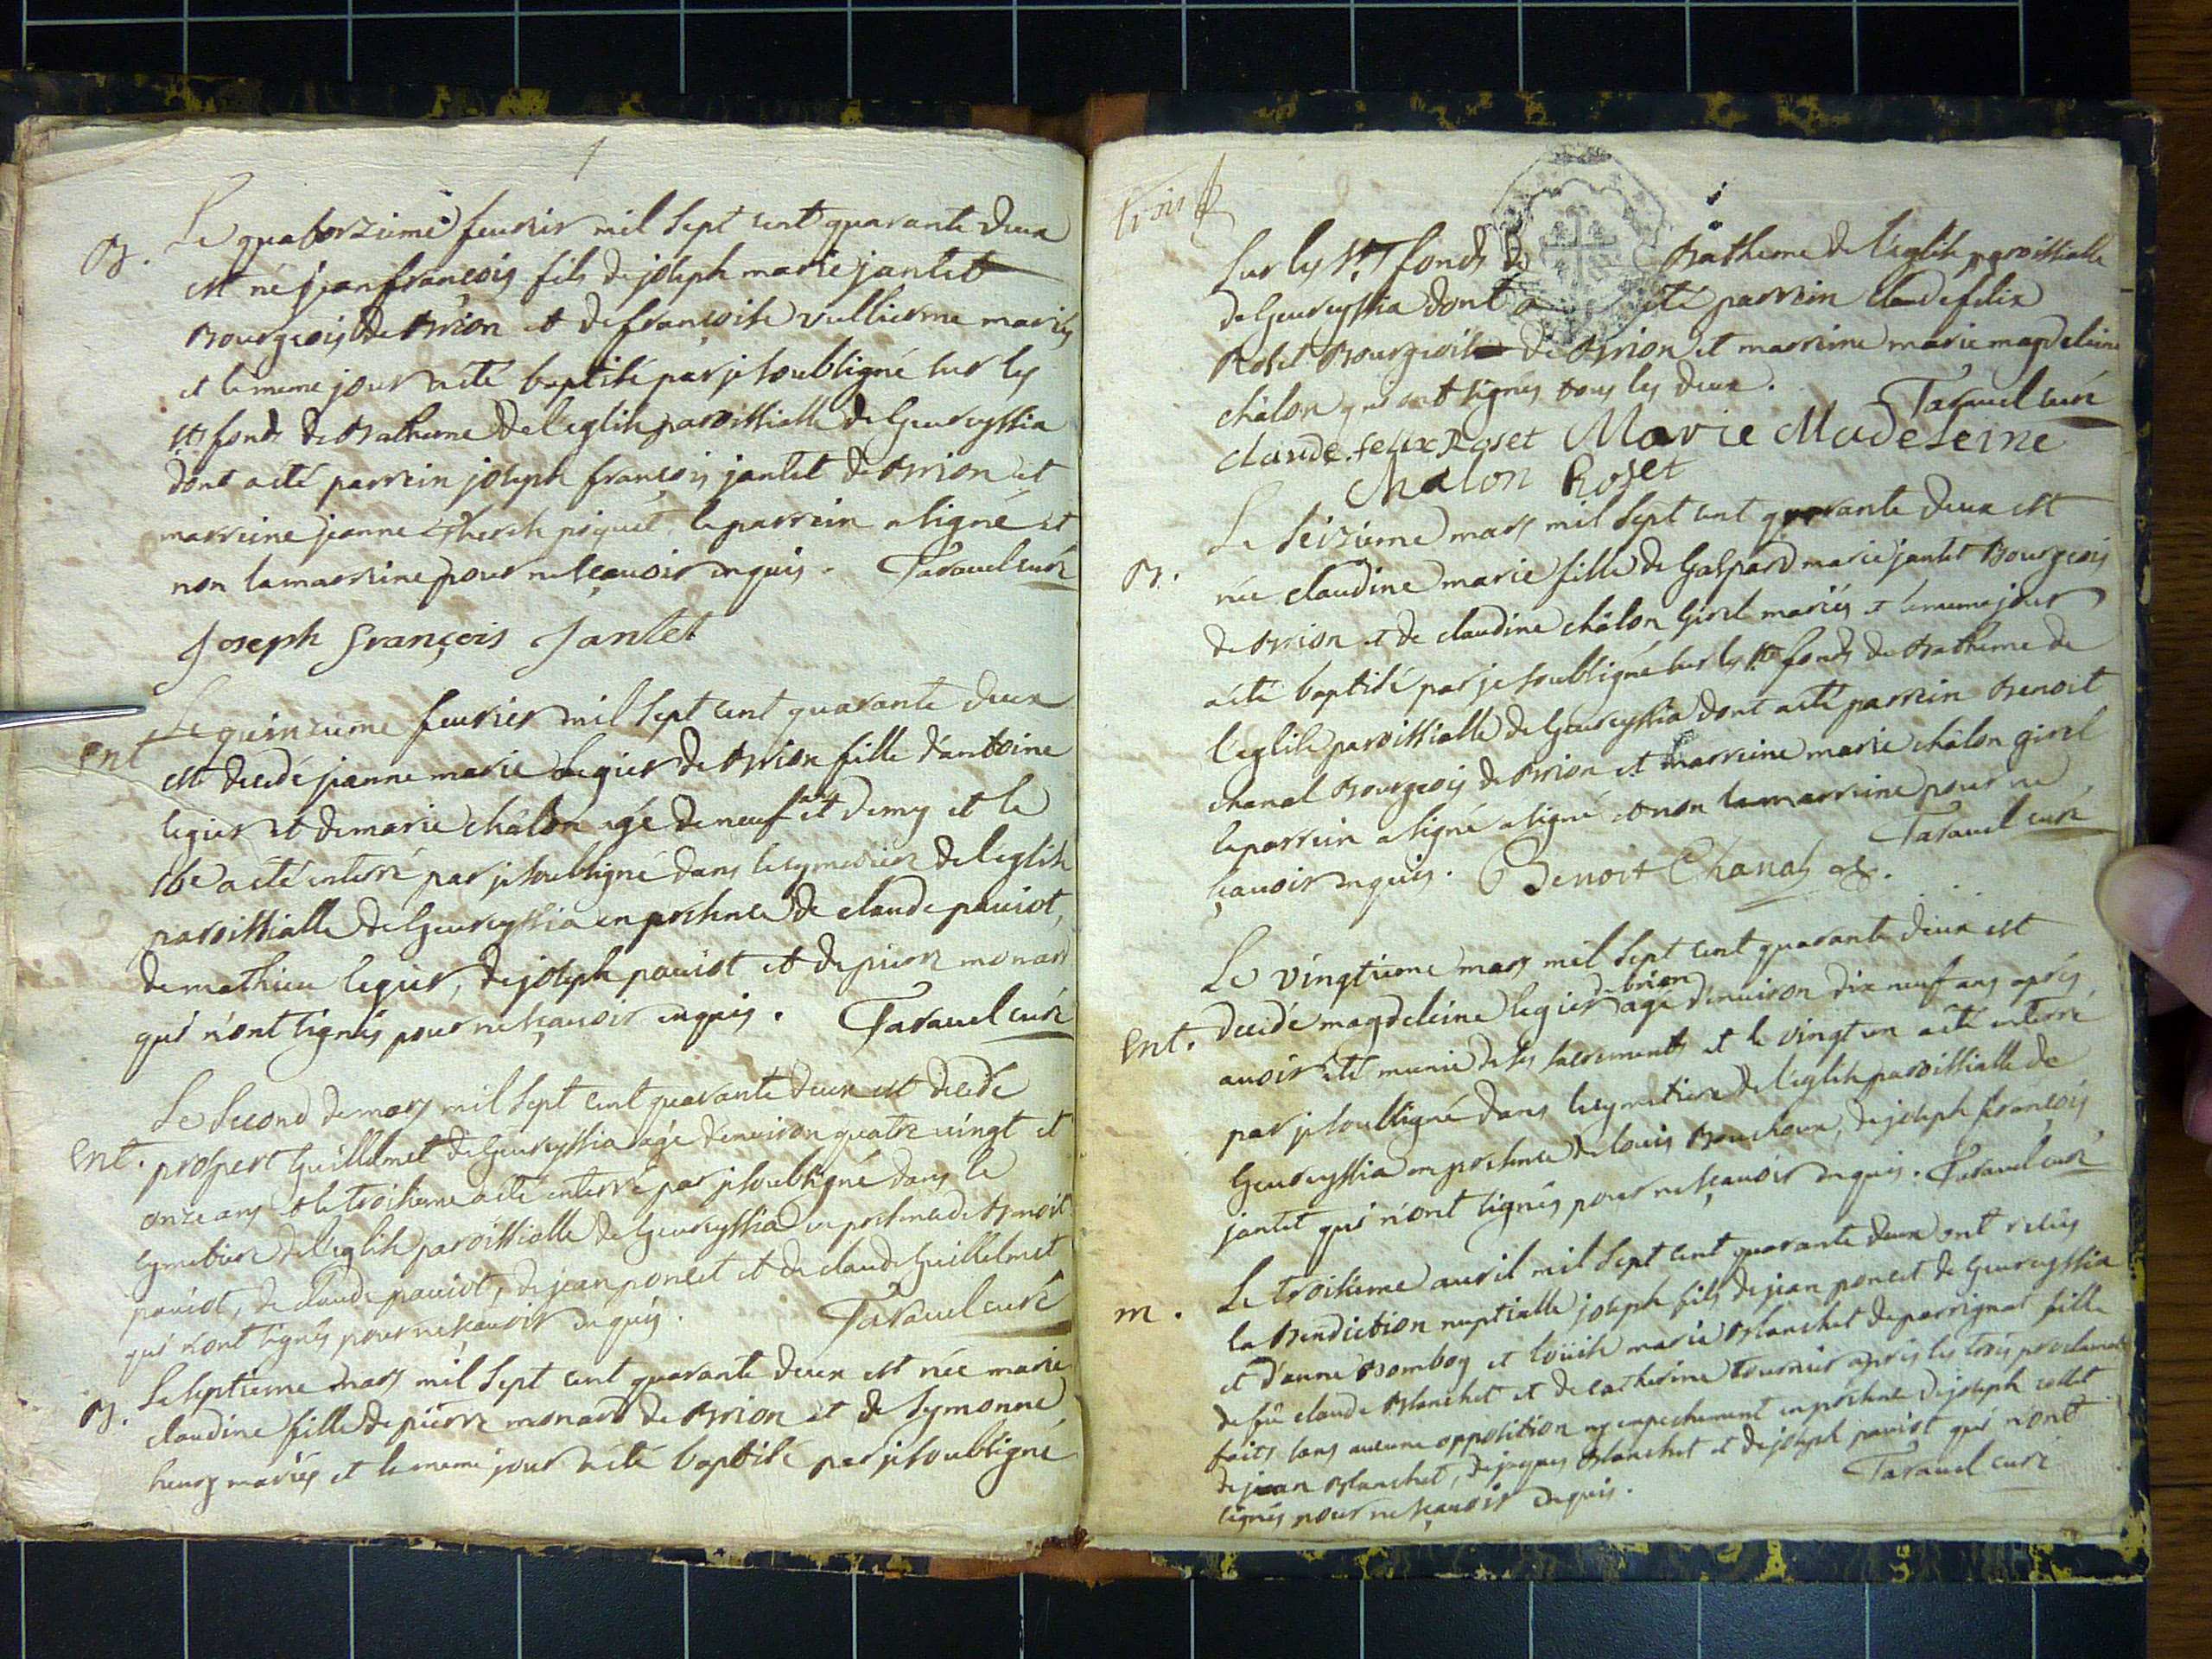 B.
Le quatorzieme feuvrier mil sept cent quarante deux
est né jean françois fils de joseph marie jantet
Bourgeois de Brion et de françoise vullierme mariés
et le meme jour a eté baptisé par je soussigné sur les
Sts fonds de Batheme de l'eglise paroissialle de Geureyssia
dont a eté parrein joseph françois jantet de Brion et
marreine jeanne therese piquet le parrein a signé et
non la marreine pour ne sçauoir enquis. Tarauel curé
Joseph françois Jantet
Ent
Le quinzieme feurier mil sept cent quarante deux
est decedé jeanne marie legier de Brion fille d'antoine
legier et de marie châlon agé de neuf ans et demy et le
16e a eté enterré par je soussigné dans le cymetiere de l'eglise
paroissialle de Geureyssia en presence de claude pauiot,
de mathieu legier, de joseph pauiot et de pierre monard
qui n'ont signés pour ne sçauoir enquis. Tarauel curé
Ent.
Le second de mars mil sept cent quarante deux est decedé
prospert Guillelmet de Geureyssia agé d'enuiron quatre vingt et
onze ans et le troisieme a eté enterré par je soussigné dans le
cymetiere de l'eglise paroissialle de Geureyssia en presence de Benoit
pauiot, de claude pauiot, de jean poncet et de claude Guillelmet
qui n'ont signés pour ne sçauoir enquis. Tarauel curé
B.
Le septieme mars mil sept cent quarante deux est née marie
claudine fille de pierre monard de Brion et de Symonne
heury mariés et le meme jour a eté baptisé par je soussigné
trois
sur les Sts fonds de Batheme de l'eglise paroissialle
de Geureyssia dont a eté parrein claude felix
Roset Bourgeois de Brion et marreine marie magdeleine
châlon qui ont signés tous les deux. Tarauel curé
claude felix Roset Marie Madeleine
Chalon Roset
B.
Le seizieme mars mil sept cent quarante deux est
née claudine marie fille de Gaspard marie jantet Bourgeois
de Brion et de claudine châlon Girel mariés et le meme jour
a eté baptisé par je soussigné sur les Sts fonds de Batheme de
l'eglise paroissialle de Geureyssia dont a eté parrein Benoit
chanal Bourgeois de Brion et marreine marie châlon girel
le parrein a signé a signé et non la marreine pour ne
sçauoir enquis. Benoit Chanal Tarauel curé
Ent.
Le vingtieme mars mil sept cent quarante deux est
decedé magdeleine legier de brion agé d'enuiron dix neuf ans après
auoir eté munie de ses sacrements et le vingt un a eté enterré
par je soussigné dans le cymetiere de l'eglise paroissialle de
Geureyssia en presence de louis Bouchoux, de joseph françois
jantet qui n'ont signés pour ne sçauoir enquis. Tarauel curé
m.
Le troisieme auril mil sept cent quarante deux ont reçus
la Benediction nuptialle joseph fils de jean poncet de Geureyssia
et d'anne Bomboy et loüise marie Blanchet de perrignat fille
de fû claude Blanchet et de catherine tournier après les trois proclamat
faits sans aucune opposition ny empechement en presence de joseph collet
de jean Blanchet, de jaques Blanchet et de joseph pauiot qui n'ont
signés pour ne sçauoir enquis. Tarauel curé